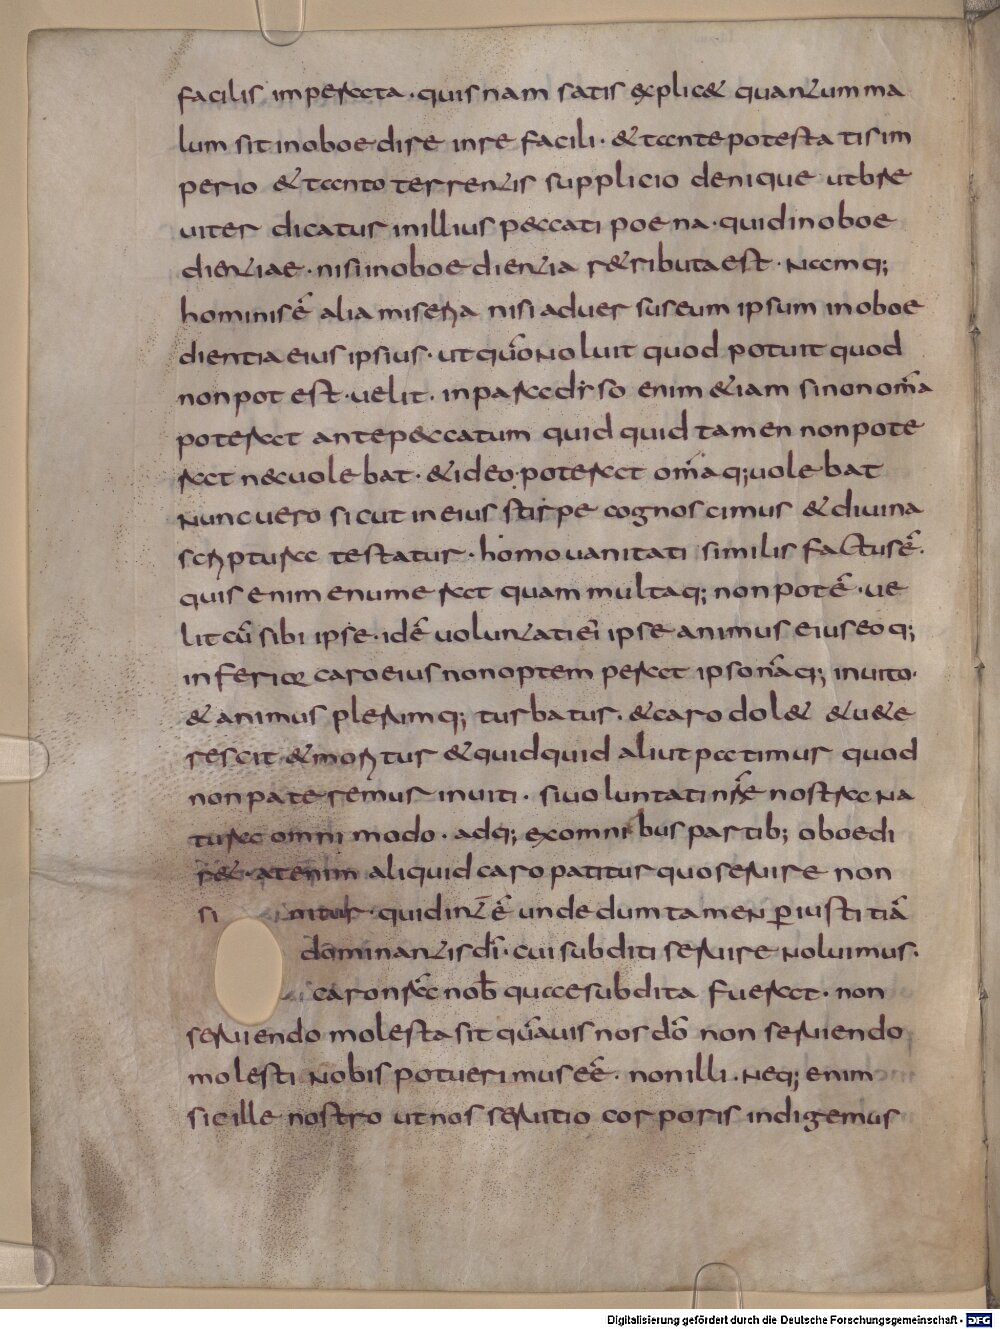 facilis imperata · quis nam satis explic& quantum ma
lum sit inoboedire in re facili · & tante potestatis im
perio & tanto terrentis supplicio denique ut bre
uiter dicatur in illius peccati poena · quid inoboe
dientiae · nisi inoboedientia r&ributa est · Nam q;
hominis ē alia miseria nisi aduersus eum ipsum inoboe
dientia eius ipsius · ut qūo Noluit quod potuit quod
non potest · uelit · in paradiso enim &iam si non om̄a
poterat ante peccatum quidquid tamen non pote
rat nec uolebat · & ideo · poterat om̄a q; uolebat
Nunc uero sicut in eius stirpe cognoscimus & diuina
scriptura testatur · homo uanitati similis factus ē.
quis enim enumerat quam multa q; non pot ē · ue
lit cū sibi ipse · id ē uoluntati ei ipse animus eius eoq;
inferior caro eius non optemperat ipso n̄aq; inuito ·
& animus plerumq; turbatur · & caro dol& & u&e
rescit & moritur & quidquid aliut patimur quod
non pateremur inuiti · si uoluntati nr̄e nostra Na
tura omni modo · adq; ex omnibus partib; oboedi
r& · at enim aliquid caro patitur quo seruire non
si nitur · quid int̄ ē unde dum tamen ꝑ iustitiā
dominantis dī · cui subditi seruire Noluimus ·
caro nr̄a nob̄ quae subdita fuerat · non
seruiendo molesta sit quāuis nos dō non seruiendo
molesti Nobis potuerimus eē · non illi · Neq; enim
sic ille nostro ut nos seruitio corporis indigemus
Digitalisierung gefördert durch die Deutsche Forschungsgemeinschaft - DFG